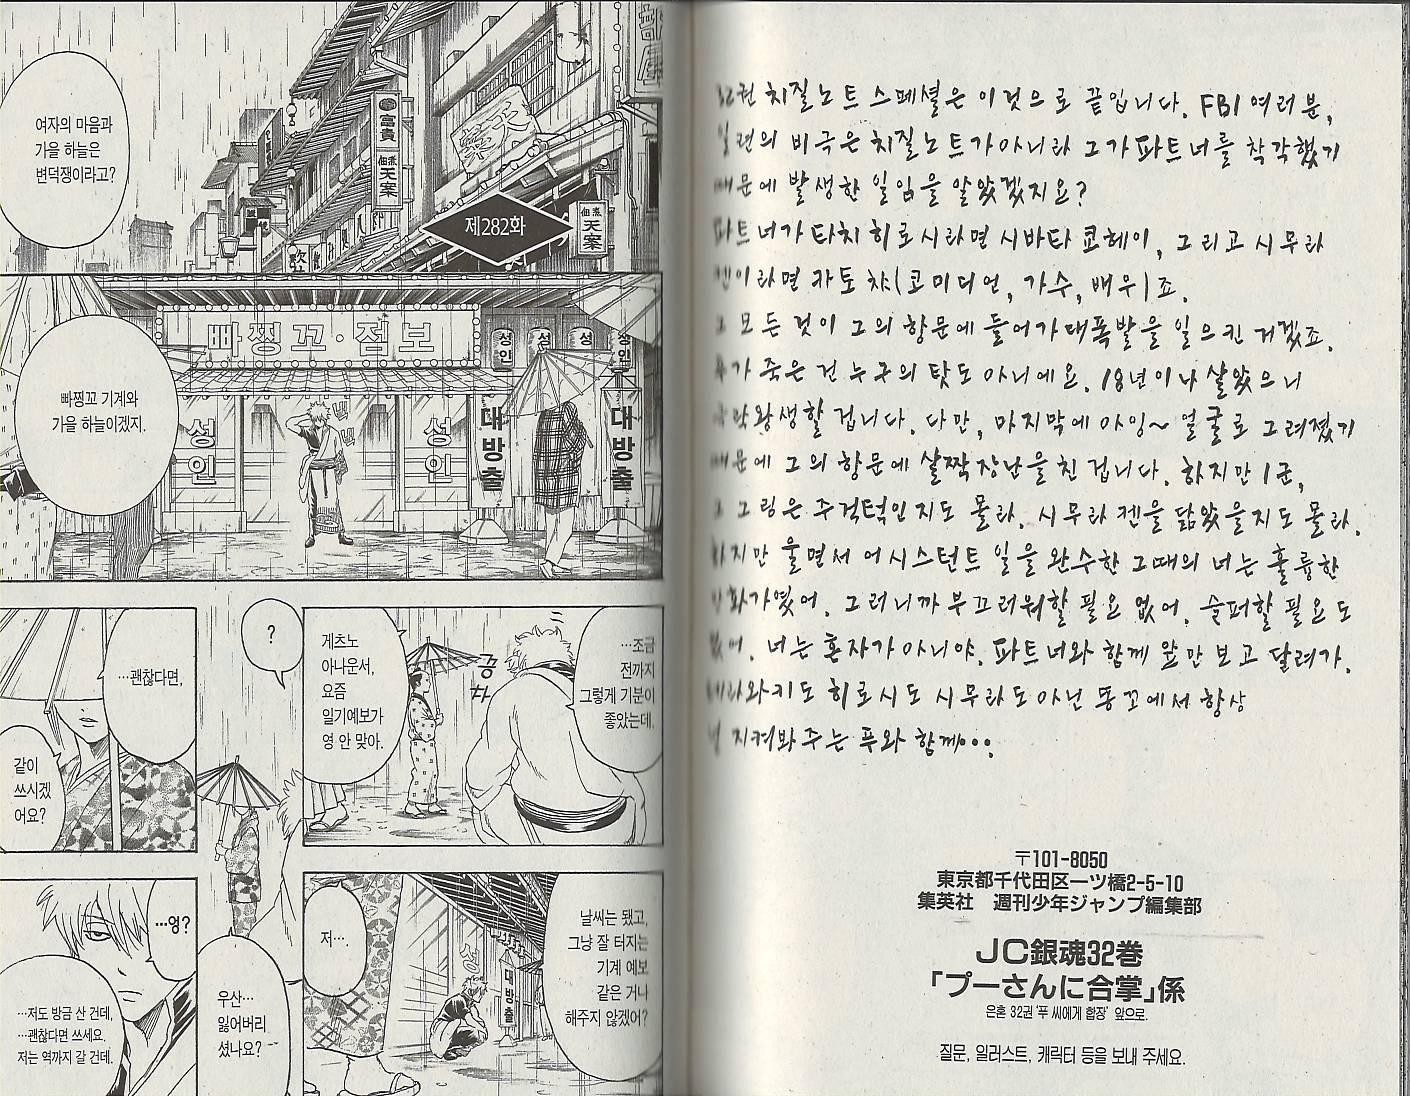 32권 치질노트 스페셜은 이것으로 끝입니다. FBI 여러분,
일련의 비극은 치질노트가 아니라 그가 파트너를 착각했기
때문에 발생한 일임을 알았겠지요?
파트너가 타치 히로시라면 시바타 쿄헤이, 그리고 시무라
켄이라면 카토 챠(코미디언, 가수, 배우)죠.
그 모든 것이 그의 항문에 들어가 대폭발을 일으킨 거겠죠.
푸가 죽은 건 누구의 탓도 아니에요. 18년이나 살았으니
극락왕생할 겁니다. 다만, 마지막에 아잉~ 얼굴로 그려졌기
때문에 그의 항문에 살짝 장난을 친 겁니다. 하지만 I군,
그 그림은 주걱턱인지도 몰라. 시무라 켄을 닮았을지도 몰라.
하지만 울면서 어시스턴트 일을 완수한 그때의 너는 훌륭한
만화가였어. 그러니까 부끄러워할 필요 없어. 슬퍼할 필요도
없어. 너는 혼자가 아니야. 파트너와 함께 앞만 보고 달려가.
테라와키도 히로시도 시무라도 아닌 똥꼬에서 항상
널 지켜봐 주는 푸와 함께….
〒101-8050
東京都千代田区一ツ橋2-5-10
集英社　週刊少年ジャンプ編集部
JC銀魂32巻
「プーさんに合掌」係
은혼 32권 '푸 씨에게 합장' 앞으로.
질문, 일러스트, 캐릭터 등을 보내 주세요.
제282화
여자의 마음과
가을 하늘은
변덕쟁이라고?
富貴
佃煮
天案
佃煮
天案
빠찡꼬·점보
성인
성인
성인
성인
성인
성인
대방출
대방출
빠찡꼬 기계와
가을 하늘이겠지.
…조금
전까지
그렇게 기분이
좋았는데.
게츠노
아나운서,
요즘
일기예보가
영 안 맞아.
날씨는 됐고,
그냥 잘 터지는
기계 예보
같은 거나
해주지 않겠어?
대방출
저….
?
우산…
잃어버리
셨나요?
…괜찮다면,
같이
쓰시겠
어요?
…엉?
…저도 방금 산 건데,
…괜찮다면 쓰세요.
저는 역까지 갈 건데.